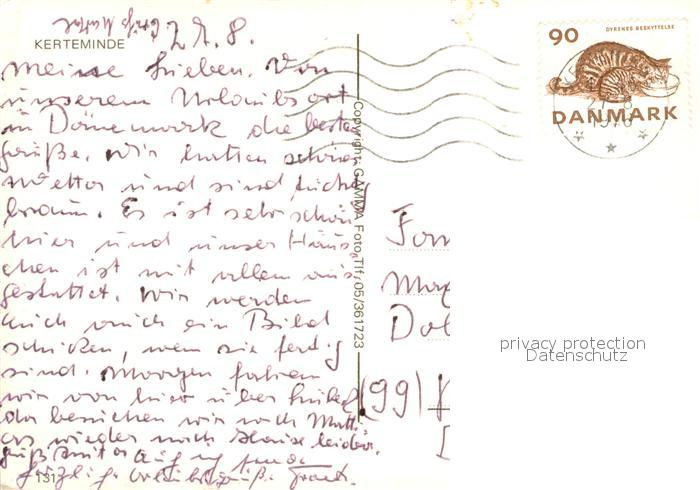 27.8.
KERTEMINDE
Meine Lieben. Von
unserem Urlaubsort
in Dänemark die besten
Grüße. Wir hatten schönes
Wetter und sind
braun. Es ist sehr schön
hier und unser Häus
chen ist mit allem aus
gestattet. Wir werden
Euch auch ein Bild
schicken, wenn sie fertig
sind. Morgen fahren
wir von hier über
da besuchen wir noch
wieder nach Hause leider.
131
Copyright: GAMMA Foto, Tlf. 05/361723
90
DYRENES BESKYTTELSE
DANMARK
(99)
privacy protection
Datenschutz